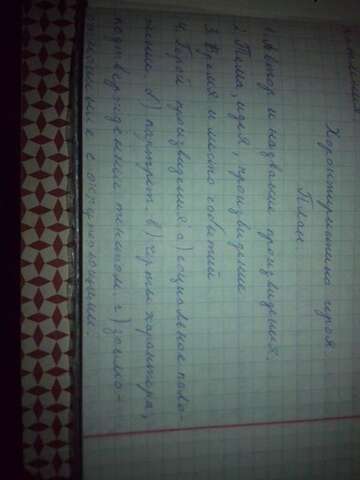 Характеристика героя
План.
1. Автор и название произведения.
2. Тема, идея, произведение
3. Время и место событий
4. Герой произведения: а) социальное поло-
жение б) портрет в) черты характера,
подтверждённые текстом г) взаимо-
с окружающими.